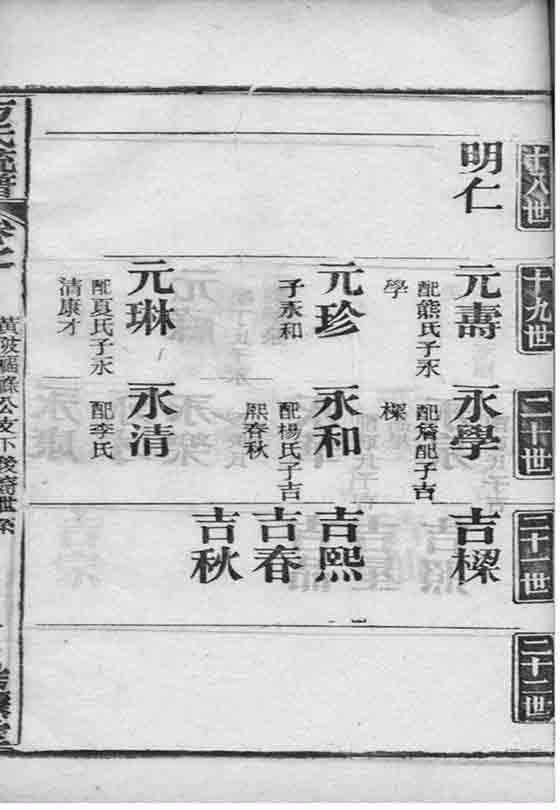 十八世
明仁
十九世
元壽
配熊氏子永
學
元珍
子永和
元琳
配夏氏子永
清康才
二十世
永學
配詹配子吉
樑
永和
配楊氏子吉
熙春秋
永清
配李氏
二十一世
吉樑
吉熙
吉春
吉秋
二十二世
方氏統譜
黃陂福緣公支下後裔世系